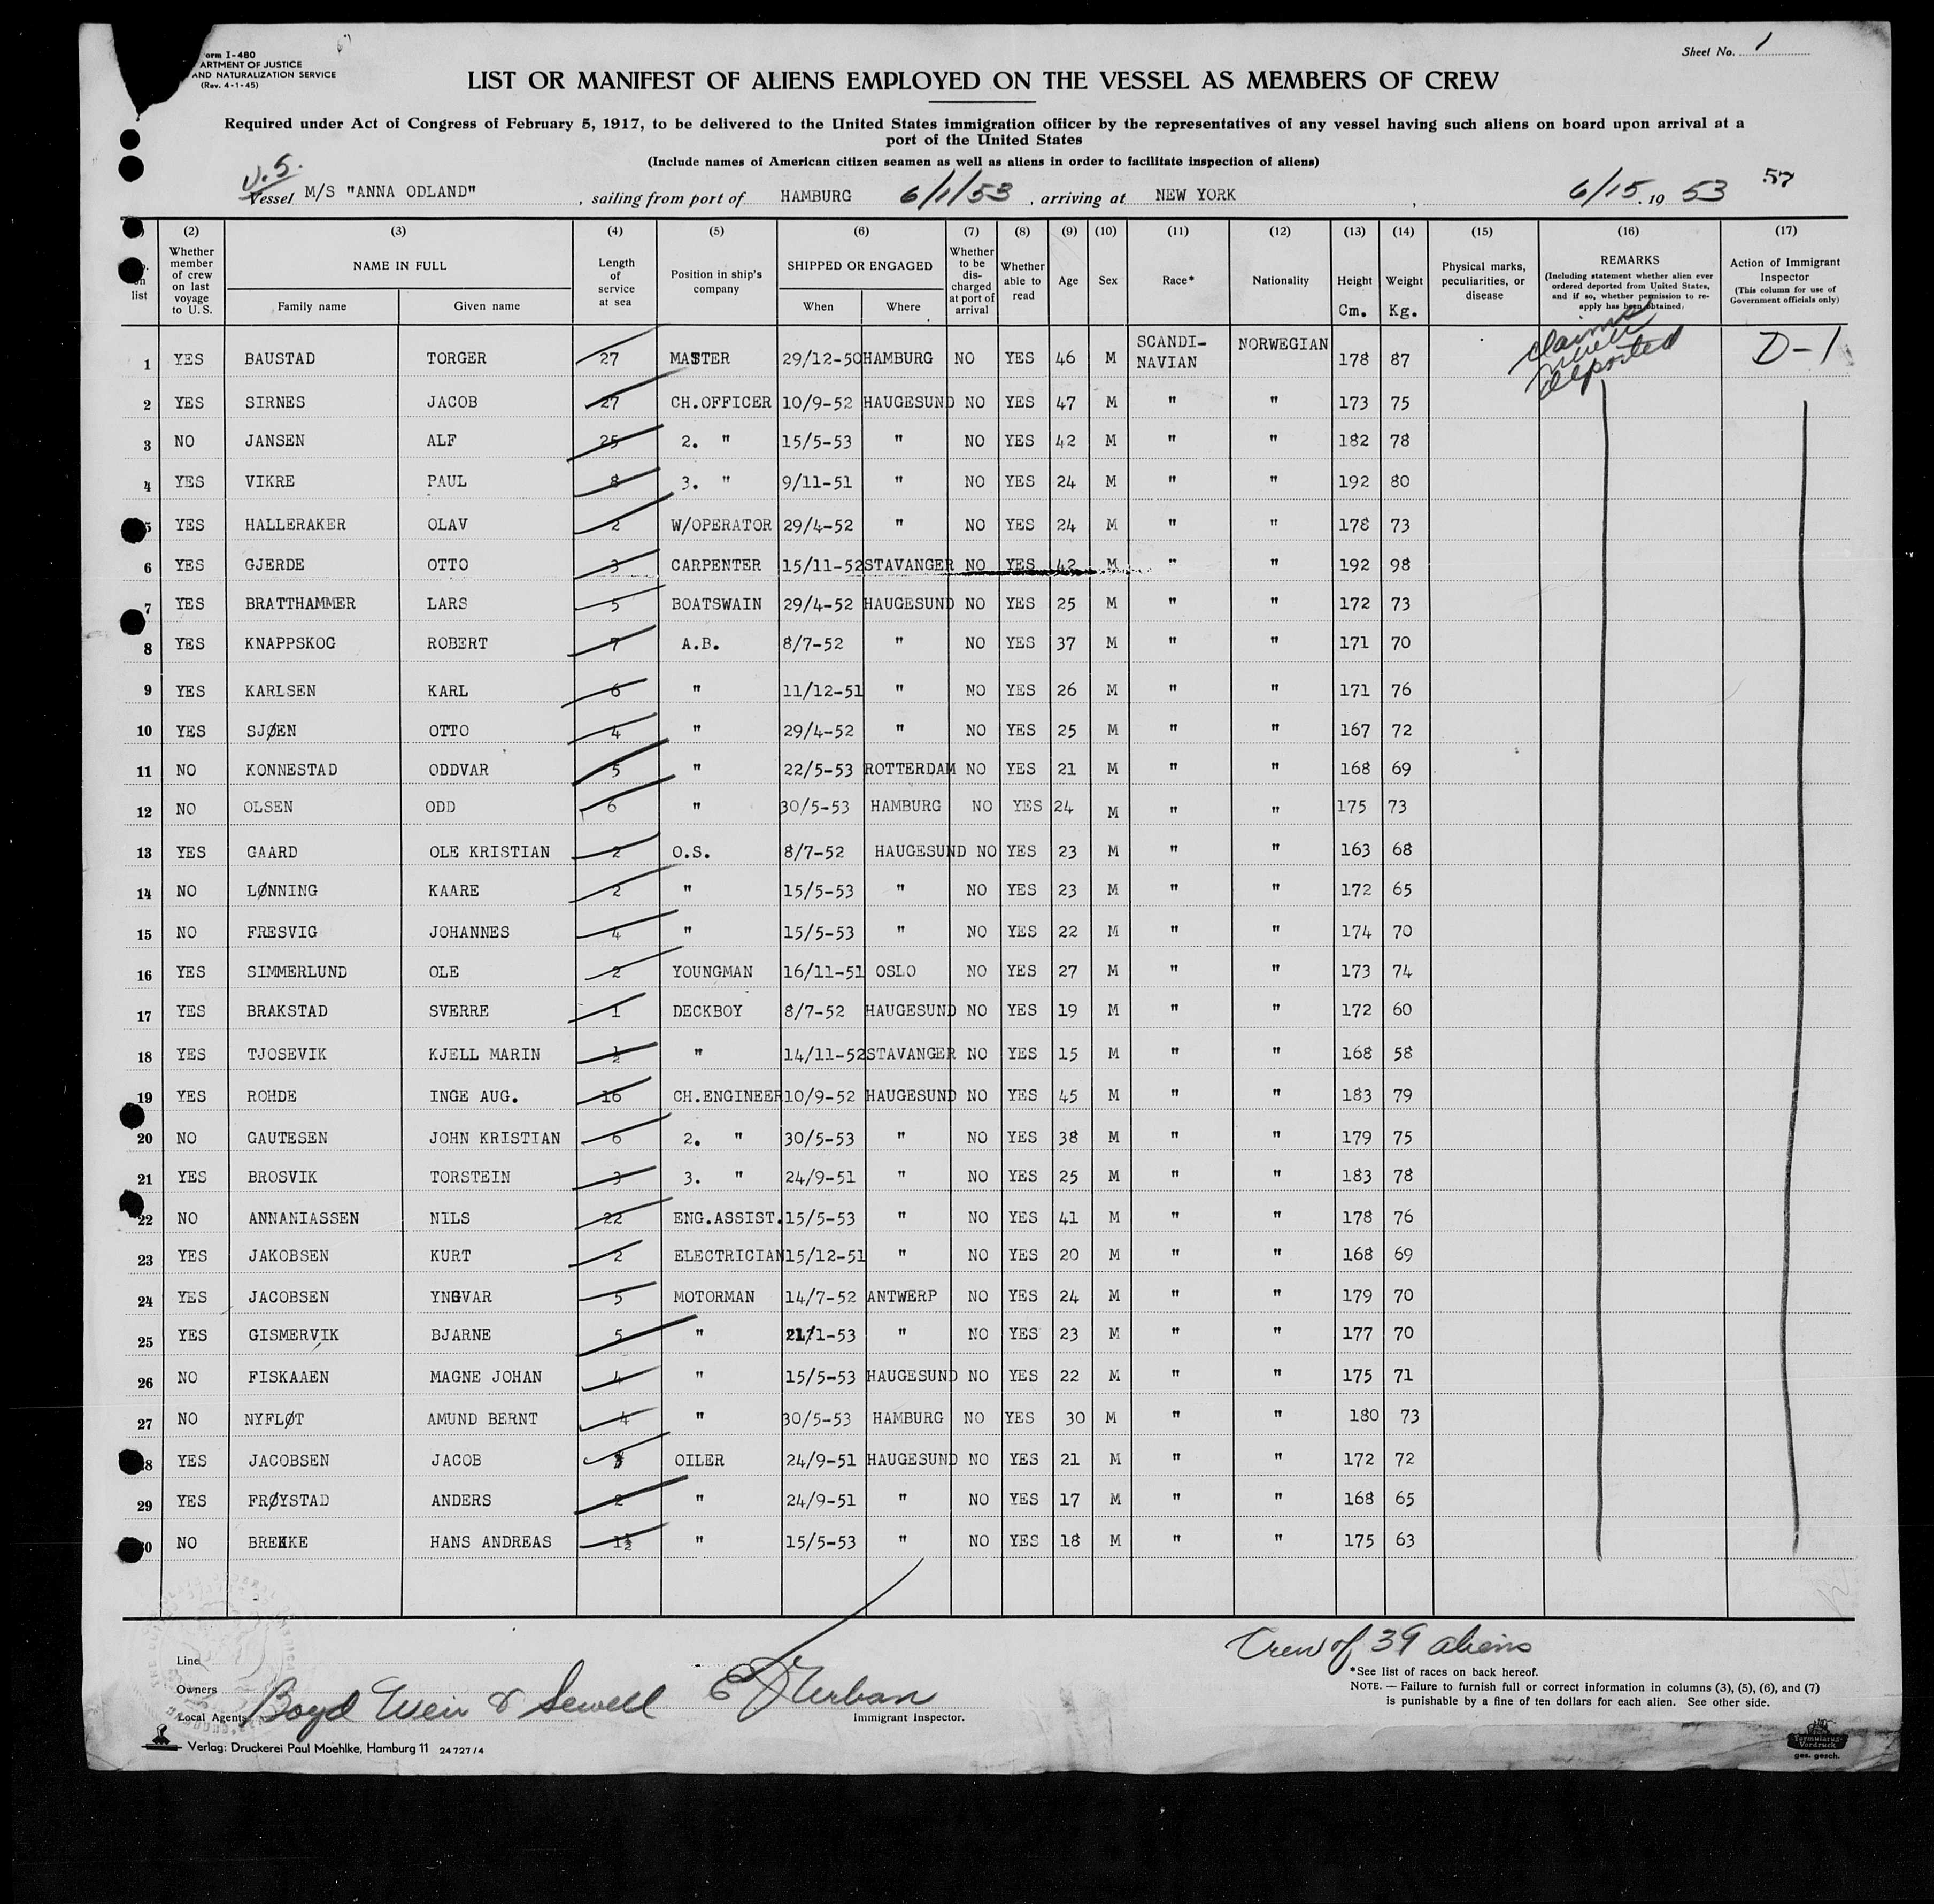 orm I-480
ARTMENT OF JUSTICE
AND NATURALIZATION SERVICE
(Rev. 4-1-45)
Sheet No. 1
LIST OR MANIFEST OF ALIENS EMPLOYED ON THE VESSEL AS MEMBERS OF CREW
Required under Act of Congress of February 5, 1917, to be delivered to the United States immigration officer by the representatives of any vessel having such aliens on board upon arrival at a
port of the United States
(Include names of American citizen seamen as well as aliens in order to facilitate inspection of aliens)
Vessel M/S "ANNA ODLAND", sailing from port of HAMBURG 6/1/53, arriving at NEW YORK, 6/15. 19 53 57
(2) (3) (4) (5) (6) (7) (8) (9) (10) (11) (12) (13) (14) (15) (16) (17)
on list
Whether member of crew on last voyage to U.S.
NAME IN FULL
Family name Given name
Length of service at sea
Position in ship's company
SHIPPED OR ENGAGED
When Where
Whether to be discharged at port of arrival
Whether able to read
Age
Sex
Race*
Nationality
Height Cm.
Weight Kg.
Physical marks, peculiarities, or disease
REMARKS
(Including statement whether alien ever ordered deported from United States, and if so, whether permission to reapply has been obtained.)
Action of Immigrant Inspector
(This column for use of Government officials only)
1 YES BAUSTAD TORGER 27 MASTER 29/12-50 HAMBURG NO YES 46 M SCANDI-NAVIAN NORWEGIAN 178 87 claims never deported D-1
2 YES SIRNES JACOB 27 CH.OFFICER 10/9-52 HAUGESUND NO YES 47 M " " 173 75
3 NO JANSEN ALF 25 2. " 15/5-53 " NO YES 42 M " " 182 78
4 YES VIKRE PAUL 8 3. " 9/11-51 " NO YES 24 M " " 192 80
5 YES HALLERAKER OLAV 2 W/OPERATOR 29/4-52 " NO YES 24 M " " 178 73
6 YES GJERDE OTTO 3 CARPENTER 15/11-52 STAVANGER NO YES 42 M " " 192 98
7 YES BRATTHAMMER LARS 5 BOATSWAIN 29/4-52 HAUGESUND NO YES 25 M " " 172 73
8 YES KNAPPSKOG ROBERT 7 A.B. 8/7-52 " NO YES 37 M " " 171 70
9 YES KARLSEN KARL 6 " 11/12-51 " NO YES 26 M " " 171 76
10 YES SJØEN OTTO 4 " 29/4-52 " NO YES 25 M " " 167 72
11 NO KONNESTAD ODDVAR 5 " 22/5-53 ROTTERDAM NO YES 21 M " " 168 69
12 NO OLSEN ODD 6 " 30/5-53 HAMBURG NO YES 24 M " " 175 73
13 YES GAARD OLE KRISTIAN 2 O.S. 8/7-52 HAUGESUND NO YES 23 M " " 163 68
14 NO LØNNING KAARE 2 " 15/5-53 " NO YES 23 M " " 172 65
15 NO FRESVIG JOHANNES 4 " 15/5-53 " NO YES 22 M " " 174 70
16 YES SIMMERLUND OLE 2 YOUNGMAN 16/11-51 OSLO NO YES 27 M " " 173 74
17 YES BRAKSTAD SVERRE 1 DECKBOY 8/7-52 HAUGESUND NO YES 19 M " " 172 60
18 YES TJOSEVIK KJELL MARIN ½ " 14/11-52 STAVANGER NO YES 15 M " " 168 58
19 YES ROHDE INGE AUG. 16 CH.ENGINEER 10/9-52 HAUGESUND NO YES 45 M " " 183 79
20 NO GAUTESEN JOHN KRISTIAN 6 2. " 30/5-53 " NO YES 38 M " " 179 75
21 YES BROSVIK TORSTEIN 3 3. " 24/9-51 " NO YES 25 M " " 183 78
22 NO ANNANIASSEN NILS 22 ENG.ASSIST. 15/5-53 " NO YES 41 M " " 178 76
23 YES JAKOBSEN KURT 2 ELECTRICIAN 15/12-51 " NO YES 20 M " " 168 69
24 YES JACOBSEN YNGVAR 5 MOTORMAN 14/7-52 ANTWERP NO YES 24 M " " 179 70
25 YES GISMERVIK BJARNE 5 " 21/1-53 " NO YES 23 M " " 177 70
26 NO FISKAAEN MAGNE JOHAN 4 " 15/5-53 HAUGESUND NO YES 22 M " " 175 71
27 NO NYFLØT AMUND BERNT 4 " 30/5-53 HAMBURG NO YES 30 M " " 180 73
8 YES JACOBSEN JACOB OILER 24/9-51 HAUGESUND NO YES 21 M " " 172 72
29 YES FRØYSTAD ANDERS 2 " 24/9-51 " NO YES 17 M " " 168 65
0 NO BREKKE HANS ANDREAS 1½ " 15/5-53 " NO YES 18 M " " 175 63
Crew of 39 aliens
Line
Owners
Local Agents Boyd Weir & Sewell
Immigrant Inspector.
*See list of races on back hereof.
NOTE. — Failure to furnish full or correct information in columns (3), (5), (6), and (7)
is punishable by a fine of ten dollars for each alien. See other side.
Verlag: Druckerei Paul Moehlke, Hamburg 11 24727/4
Formulare-Vordruck
ges. gesch.